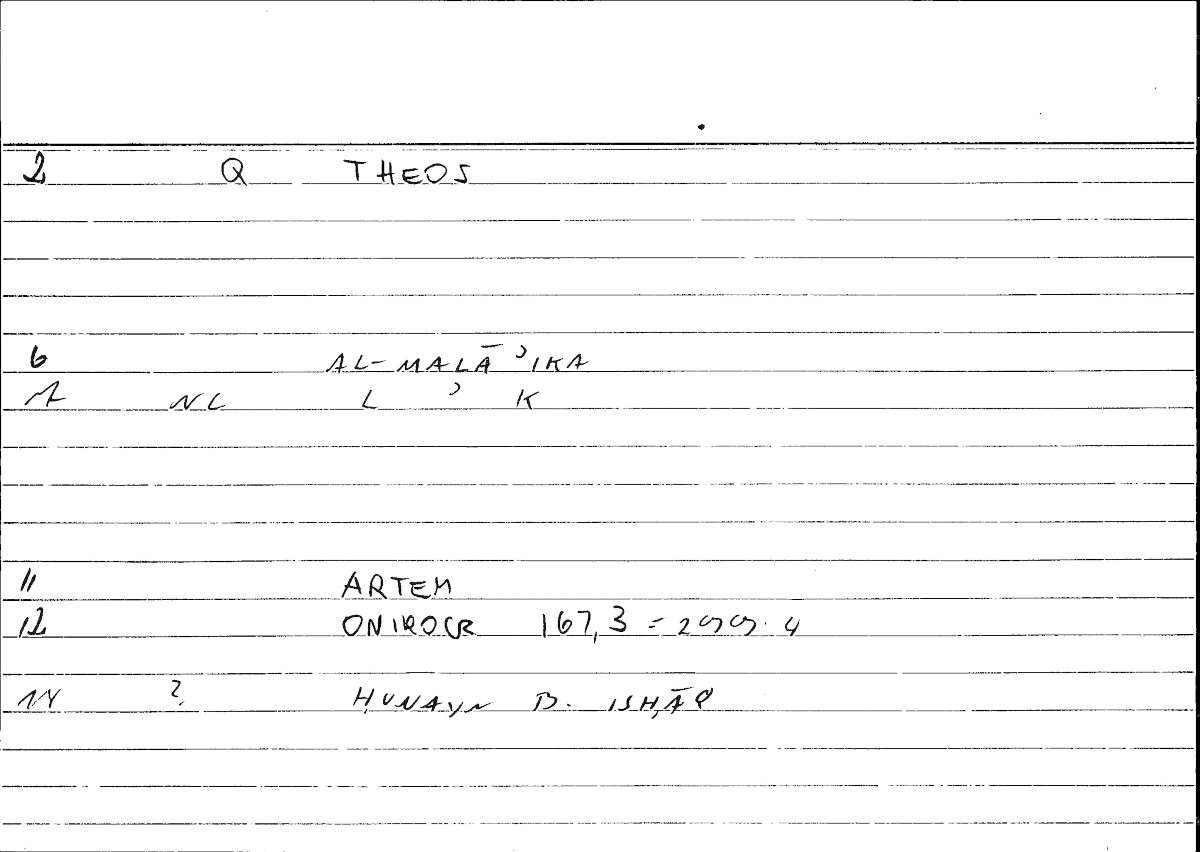 2 Q THEOS
6 AL-MALĀʾIKA
7 NC L ʾ K
11 ARTEM
12 ONIROCR 167,3 = 299.4
14 ? ḤUNAYN B. ISḤĀQ